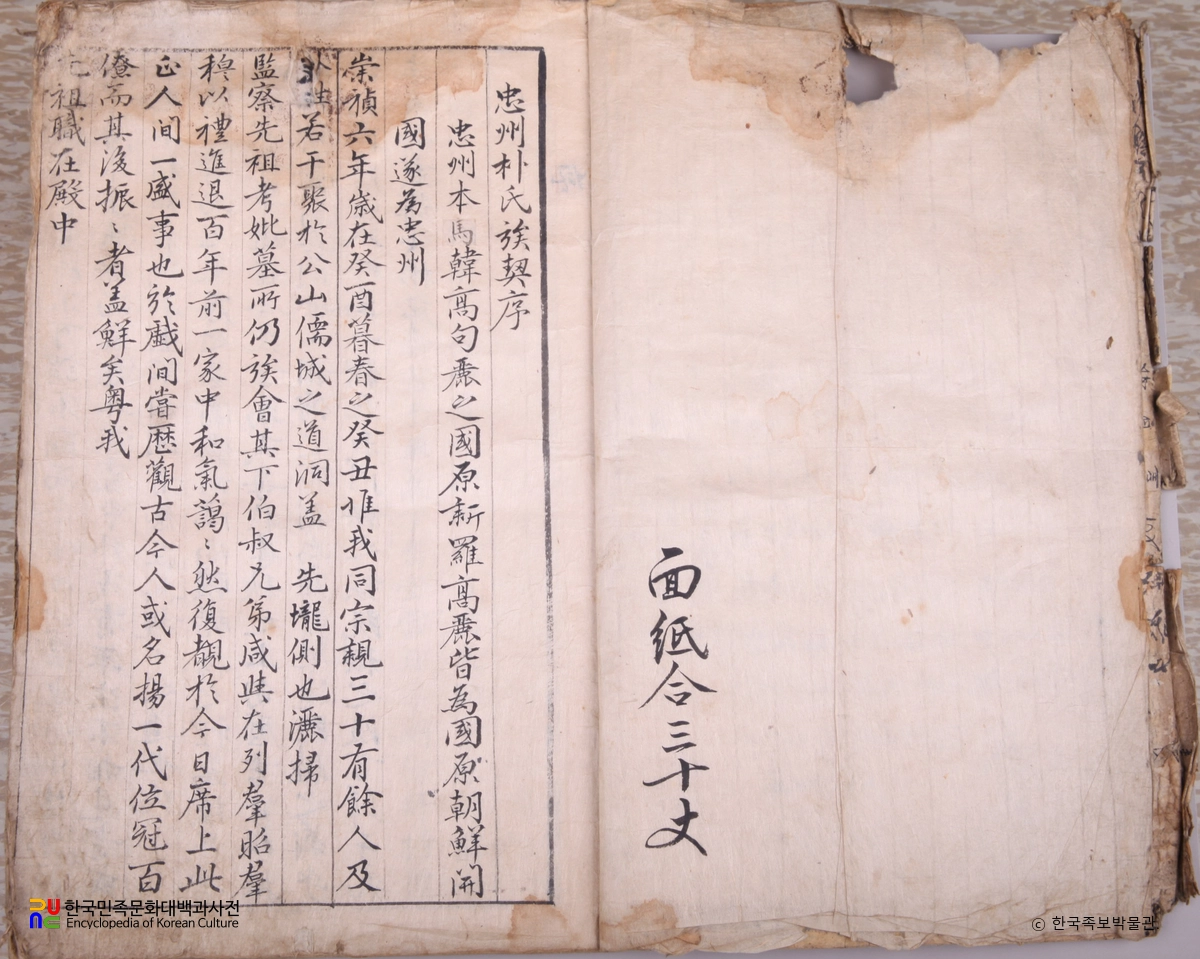 面紙合三十丈
忠州朴氏族契序
忠州本馬韓高句麗之國原新羅高麗皆為國原朝鮮開
國遂為忠州
崇禎六年歲在癸酉暮春之癸丑惟我同宗親三十有餘人及
若干聚於公山儒城之道洞盖 先壠側也灑掃
監察先祖考妣墓所仍族會其下伯叔兄弟咸與在列羣昭羣
穆以禮進退百年前一家中和氣藹〻然復覩於今日席上此
正人間一盛事也於戱間嘗歷觀古今人或名揚一代位冠百
僚而其後振〻者盖鮮矣粤我
先祖職在殿中
한국민족문화대백과사전
Encyclopedia of Korean Culture
ⓒ 한국족보박물관